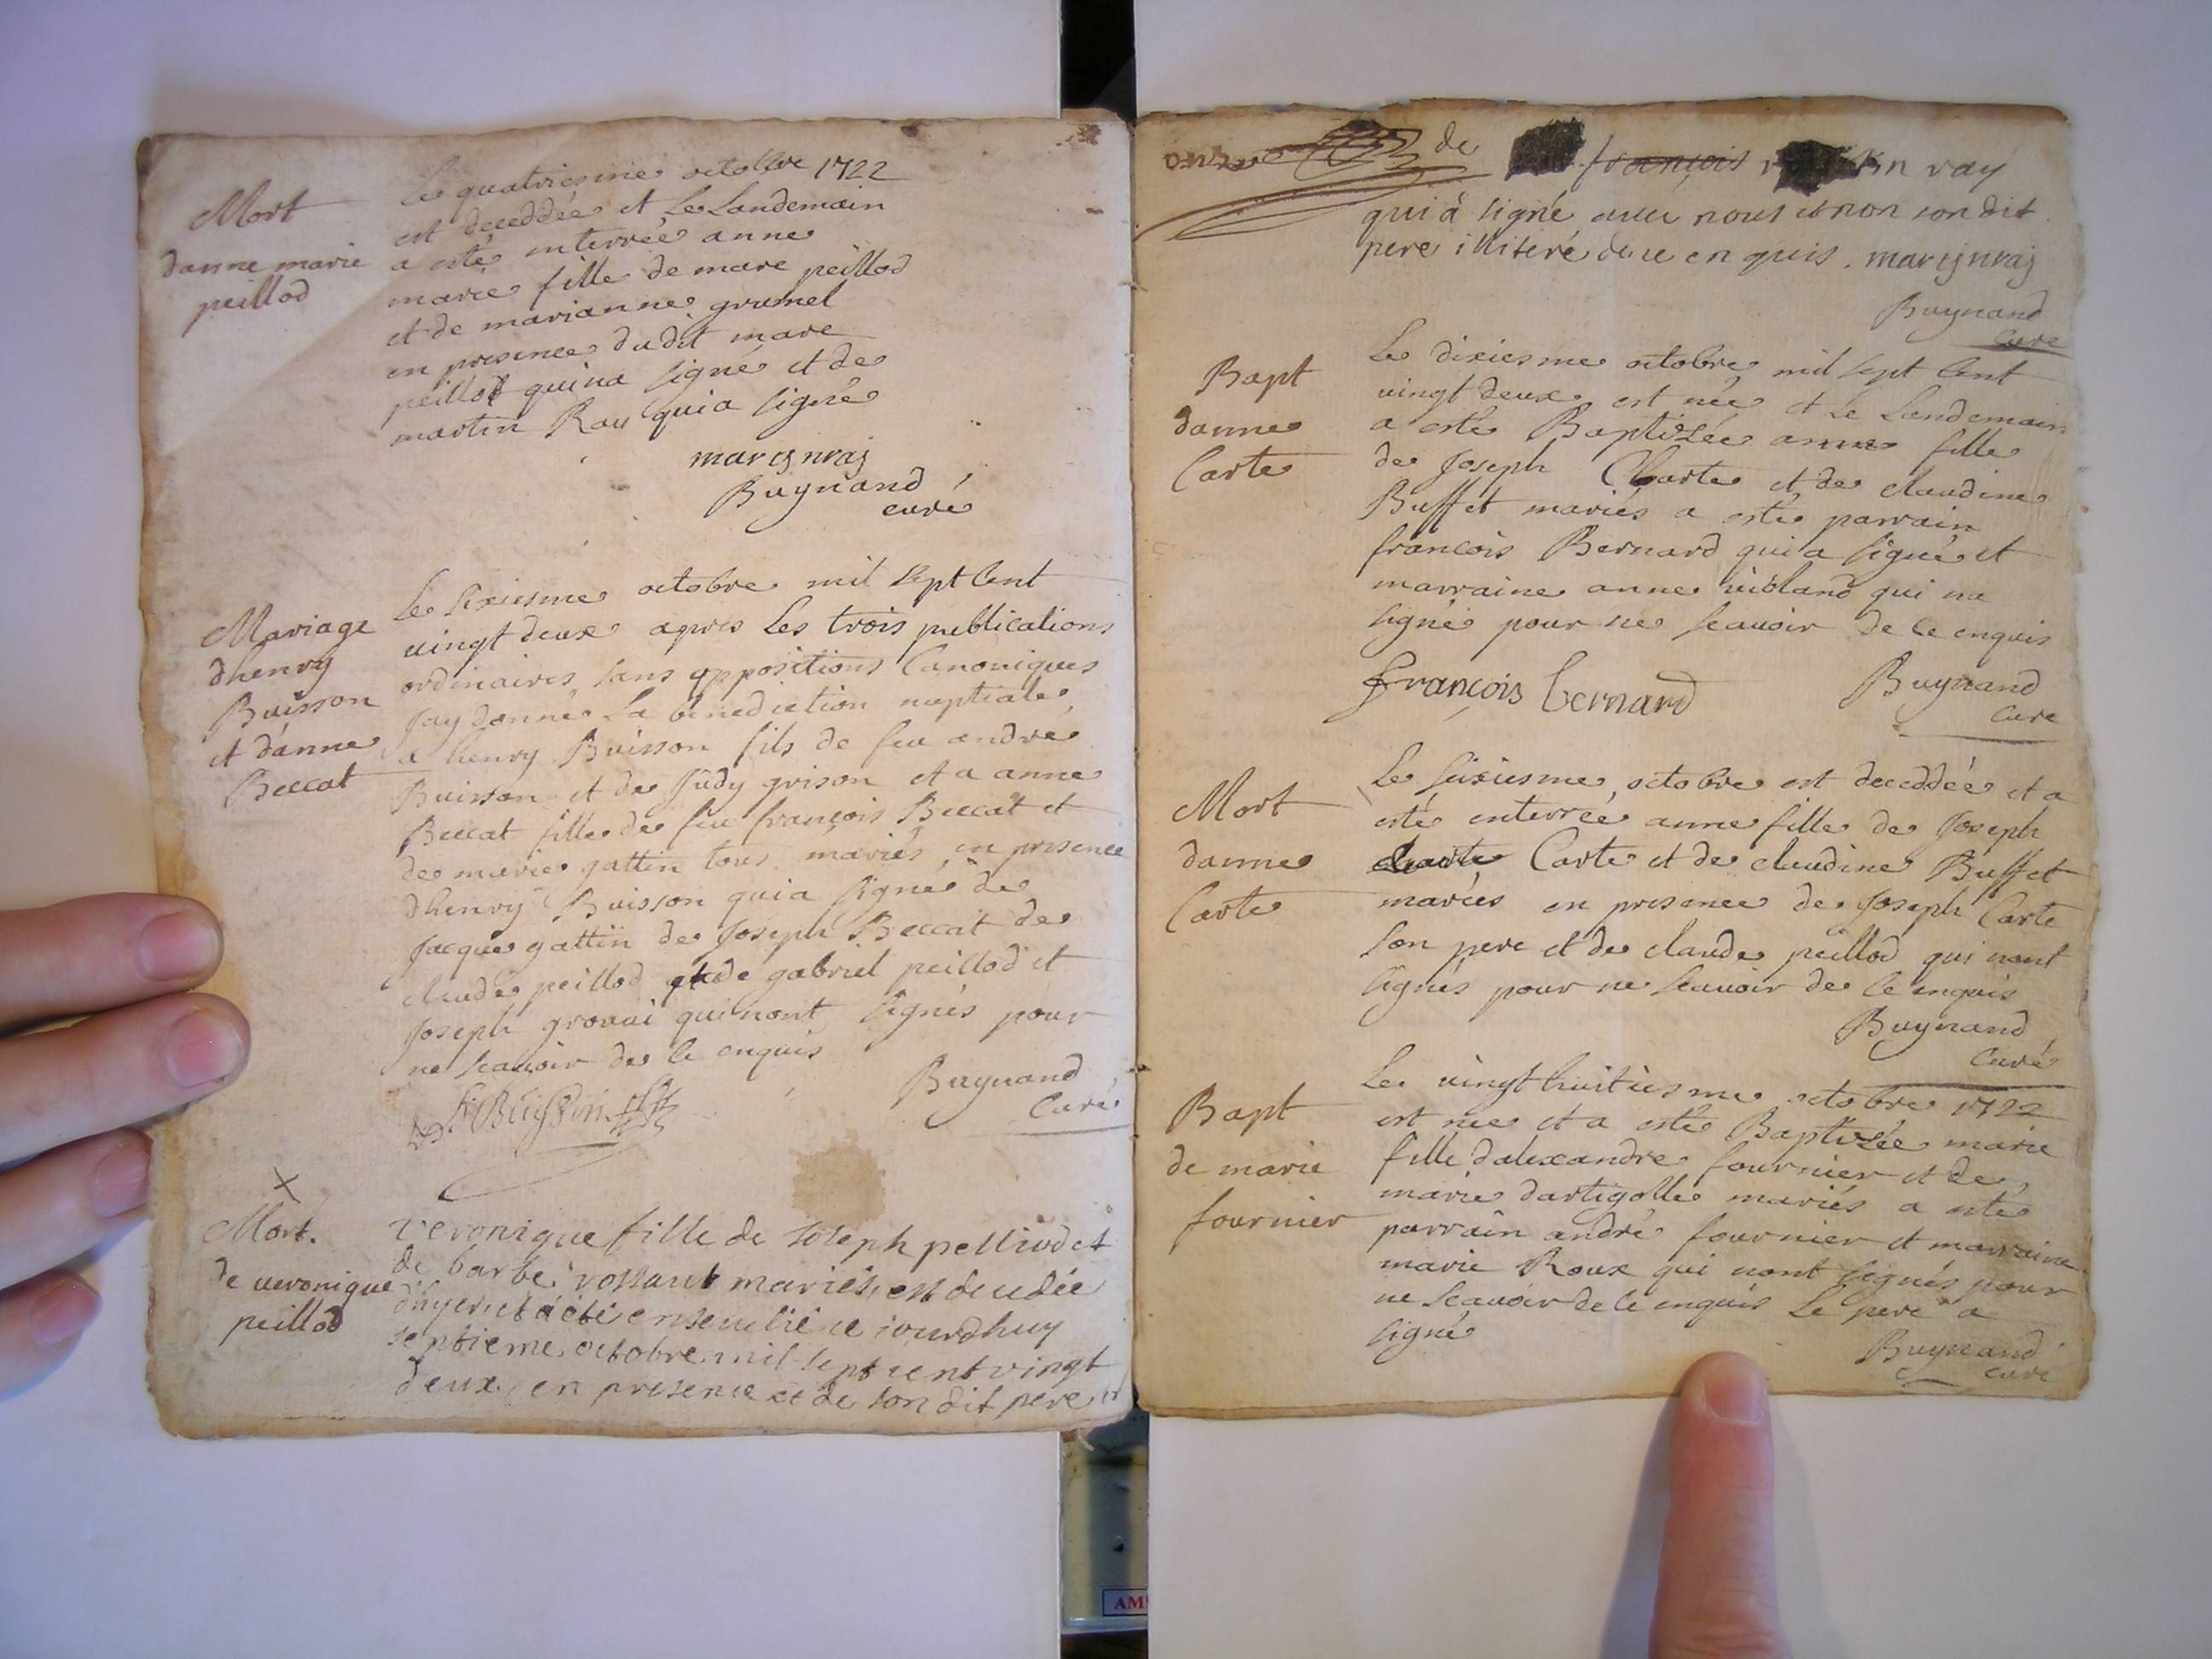 Mort
danne marie
peillod
Le quatriesme octobre 1722
est deceddée et Le Landemain
a esté enterrée anne
marie fille de marc peillod
et de marianne grumel
en presence dudit marc
peillod qui na signé et de
martin Ray qui a signé
martjn raj
Buynand
curé
Mariage
dhenry
Buisson
et danne
Beccat
Le sixiesme octobre mil sept Cent
vingt deux apres Les trois publications
ordinaires sans oppositions Canoniques
Jay donné La benediction nuptiale
a henry Buisson fils de feu andré
Buisson et de Judy grison et a anne
Beccat fille de feu françois Beccat et
de marie gattin tous mariés en presence
dhenry Buisson qui a signé de
Jacque gattin de Joseph Beccat de
claude peillod et de gabriel peillod et
Joseph qui nont signés pour
ne scavoir de ce enquis
Buynand
Curé
h Buisson
x
Mort.
de veronique
peillod
veronique fille de Joseph pelliod et
de barbe mariés, est decedée
dhyer et a été ensevelie ce jourdhuy
septieme octobre mil sept cent vingt
deux, en presence et de son dit pere et
de françois ray
qui à signé avec nous et non son dit
pere illiteré de ce enquis. martjn raj
Buynand
Curé
Bapt
danne
Carte
Le dixiesme octobre mil sept Cent
vingt deux est née et Le Landemain
a esté Baptisée anne fille
de Joseph Carte et de claudine
Buffet mariés a esté parrain
françois Bernard qui a signé et
marraine anne violand qui na
signé pour ne scavoir de ce enquis
françois bernard
Buynand
Curé
Mort
danne
Carte
Le seiziesme octobre est deceddée et a
esté enterrée anne fille de Joseph
Carte et de claudine Buffet
mariés en presence de Joseph Carte
son pere et de claude peillod qui nont
signés pour ne scavoir de ce enquis
Buynand
Curé
Bapt
de marie
fournier
Le vingt huitiesme octobre 1722
est nee et a esté Baptisée marie
fille dalexandre fournier et de
marie dartigolle mariés a esté
parrain andré fournier et marraine
marie Roux qui nont signés pour
ne scavoir de ce enquis Le pere a
signé
Buynand
curé